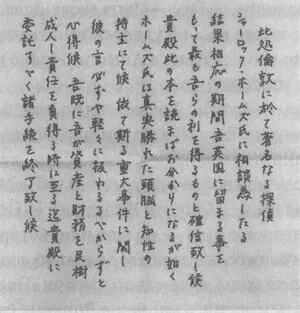 此処倫敦に於て著名なる探偵
シャーロック・ホームズ氏に相談為したる
結果相応の期間吾英国に留まる事を
もて最も吾らの利を得るものと確信致し候
貴殿此の本を読まばお分かりになるが如く
ホームズ氏は真実勝れた頭脳と知性の
持主にて候 依て斯る重大事件に関し
彼の言必ずや軽々に扱わるるべからずと
心得候 吾既に吾が資産と財務を民樹
成人し責任を負得る時に至る迄貴殿に
委託すべく諸手続を終了致し候